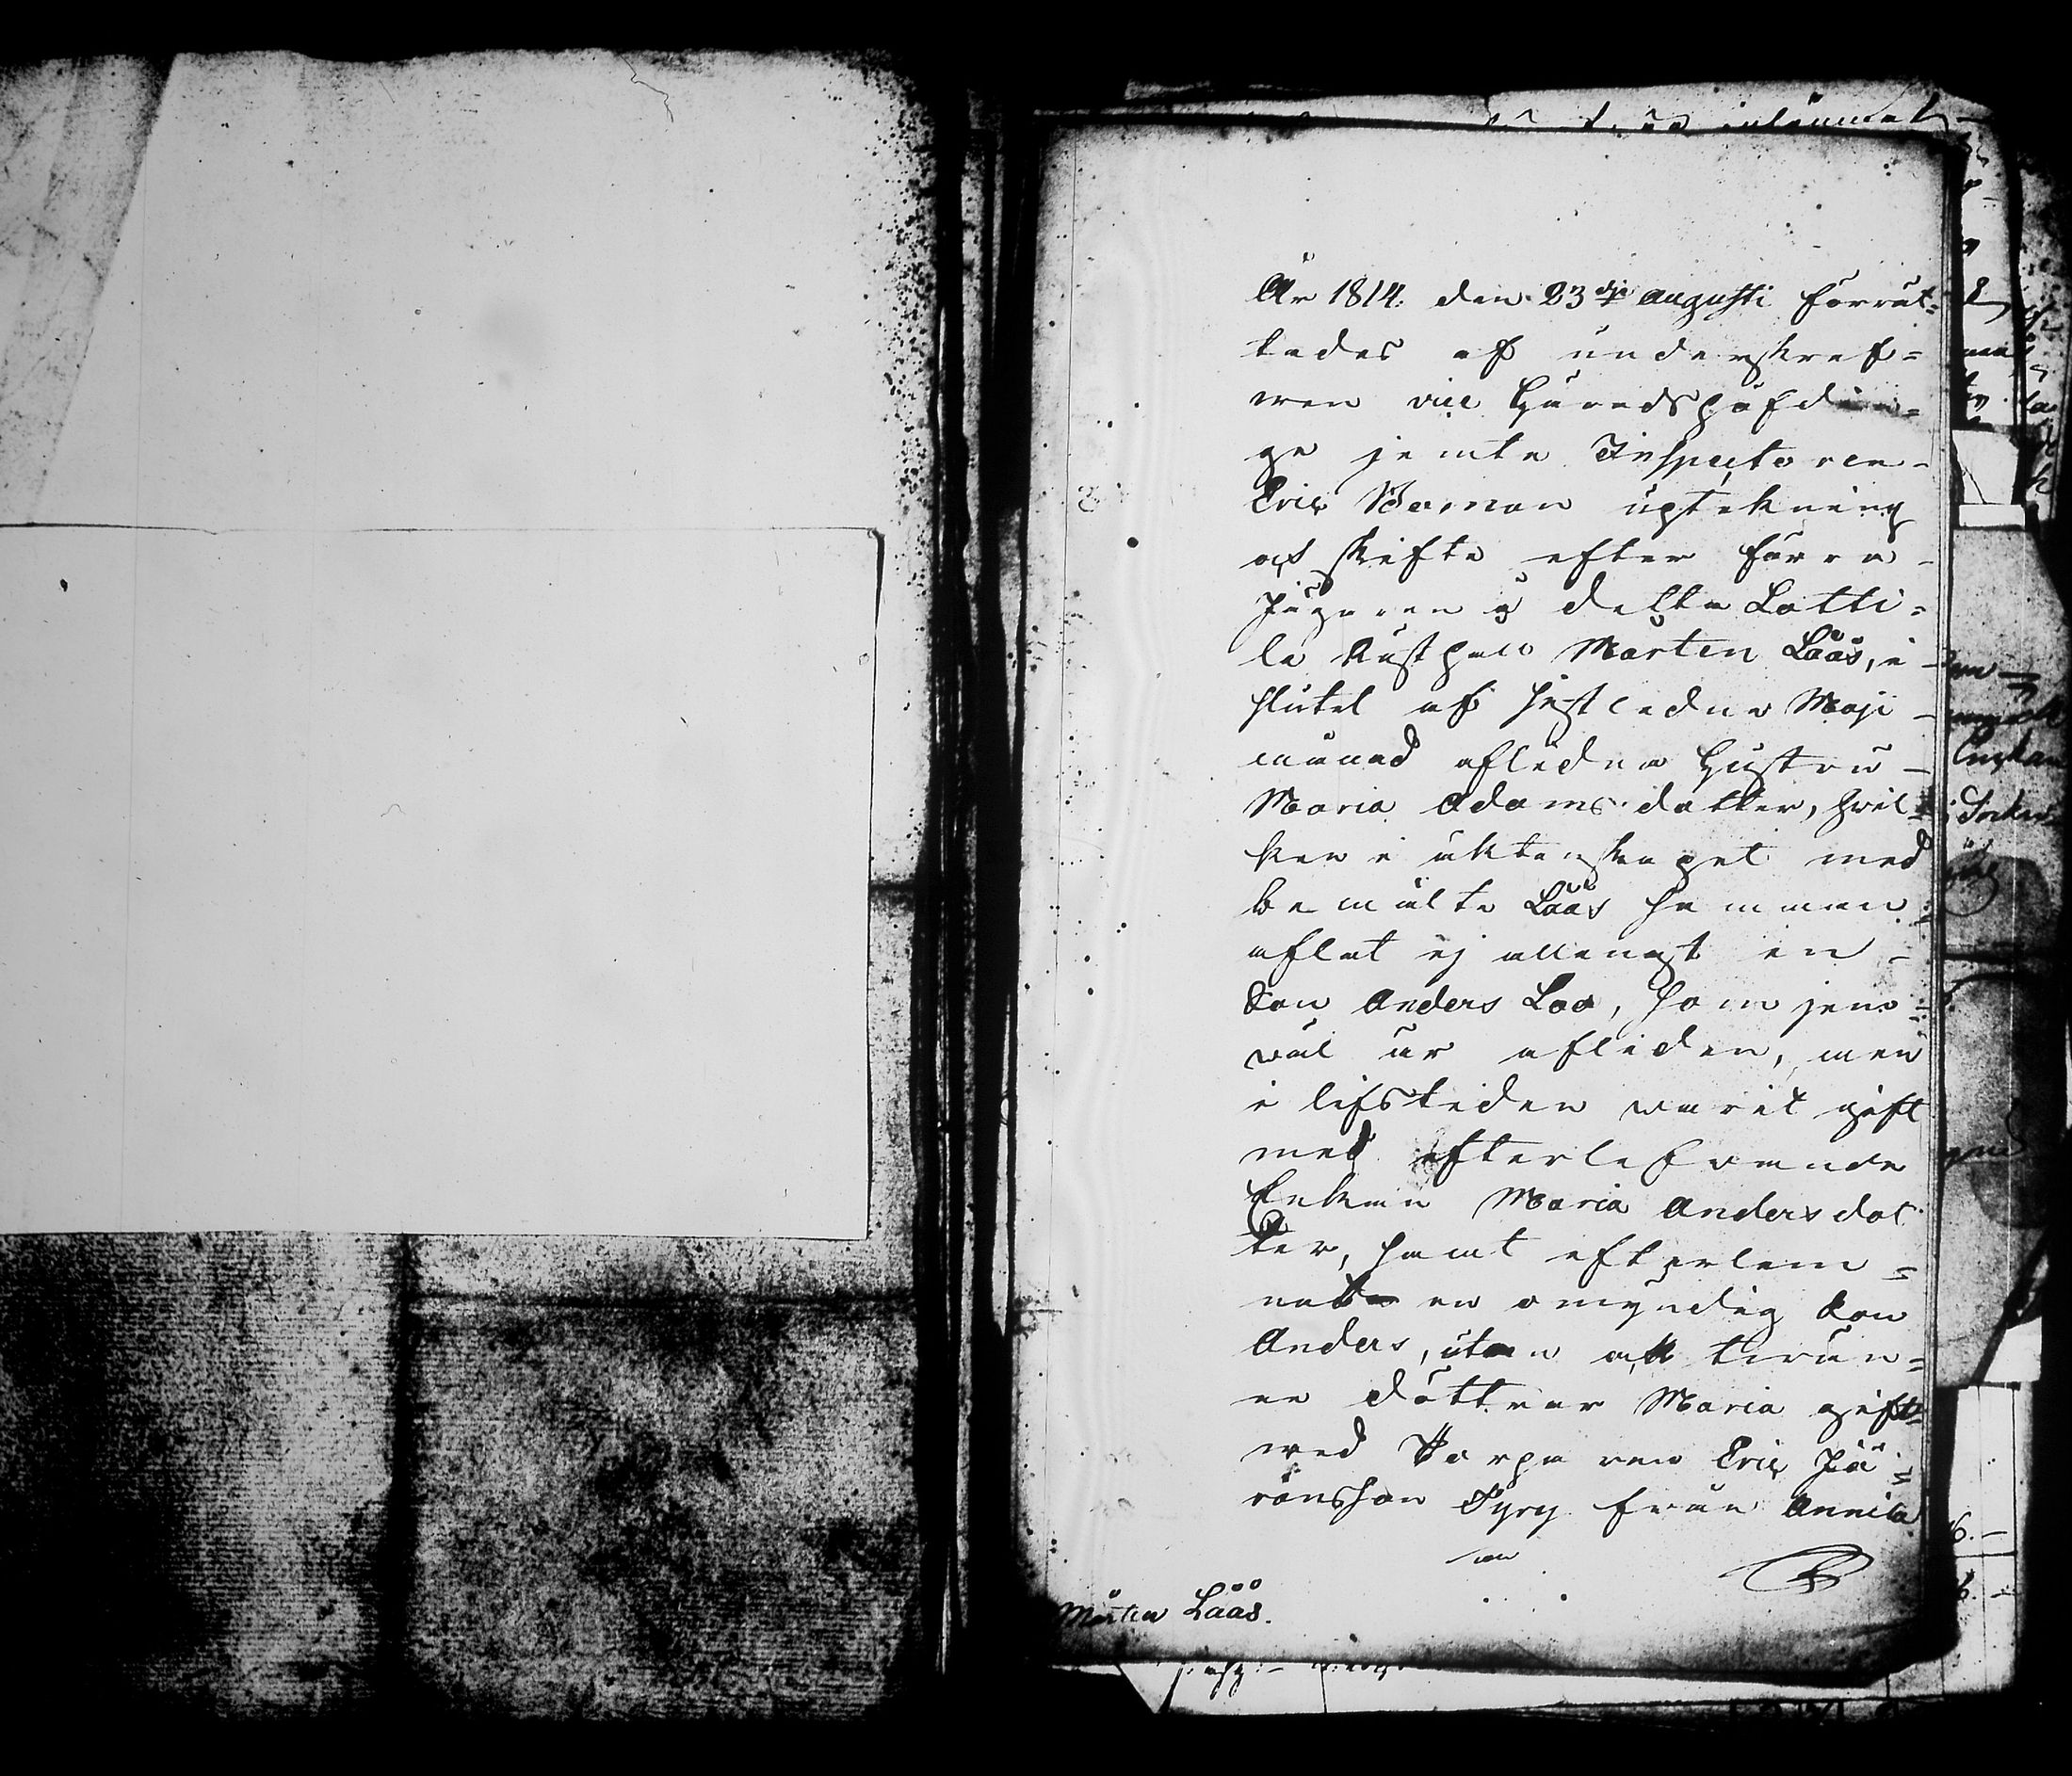 År 1814. den 23dje Augusti förrät=
tades af underskref=
wen vice Häradshöfdin=
ge jemte Inspectoren
Eric Boman uptekning
och skifte efter förra
Lotti=
le Rusthåll Mårten Lååås, i
slutet af sistledne Maji
månad aflidna Hustru
Maria Adamsdotter, hvil=
ken i äktenskapet med
bemälte Lååås samman=
aflat ej allenast en
Son Anders Låås, som jem=
väl är afliden, men
i lifstiden warit gift
med efterlefwande
Enkan Maria Andersdot
ter, samt efterlem=
nat en omyndig Son
Anders, utan ock twän=
ne döttrar Maria gift
med Torparen Eric Jö=
ransson Syry från Annila
Mårten Lååås.